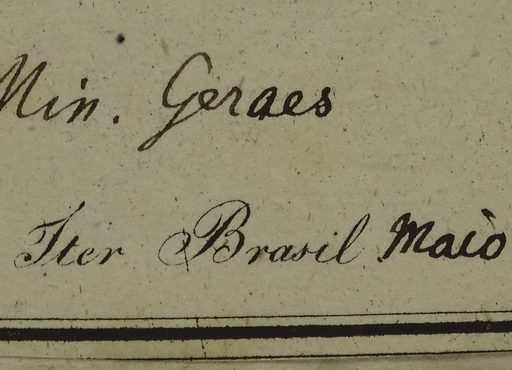 Min. Geraes
Iter Brasil Maio